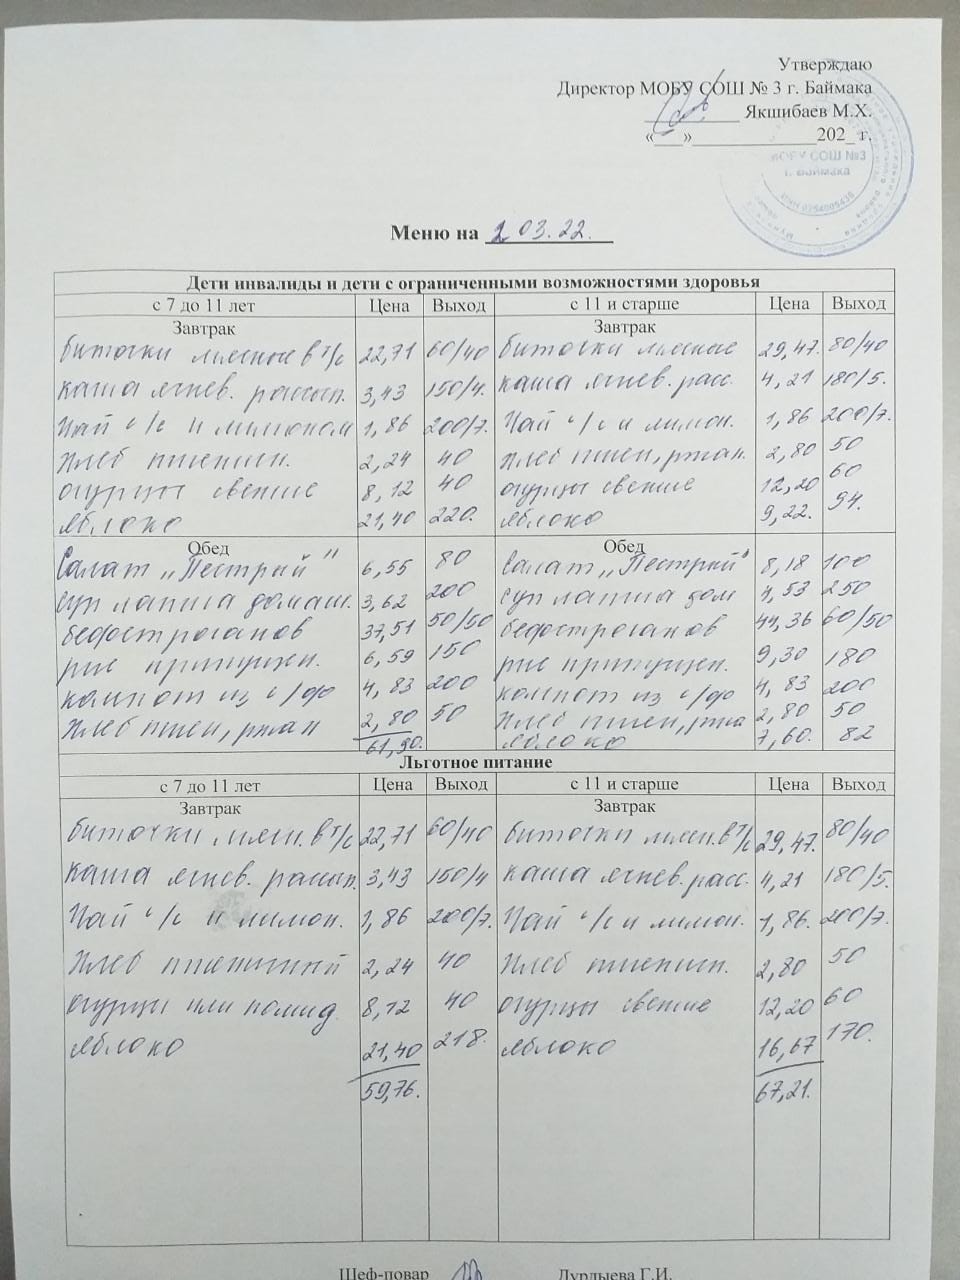 Утверждаю
Директор МОБУ СОШ № 3 г. Баймака
Якшибаев М.Х.
«___»____________202_ г.
МОБУ СОШ №3
г. Баймака
ИНН 0254005436
Меню на 2 03.22.
Дети инвалиды и дети с ограниченными возможностями здоровья
с 7 до 11 лет Цена Выход с 11 и старше Цена Выход
Завтрак Завтрак
биточки мясные в т/с 22,71 60/40 биточки мясные 29,47. 80/40
каша ячнев. рассып. 3,43 150/4. каша ячнев. расс. 4,21 180/5.
Чай с/с и лимоном 1,86 200/7. Чай с/с и лимон. 1,86 200/7.
Хлеб пшеничн. 2,24 40 Хлеб пшен, ржан. 2,80 50
огурцы свежие 8,12 40 огурцы свежие 12,20 60
яблоко 21,40 220. яблоко 9,22. 94.
Обед Обед
Салат „Пестрый" 6,55 80 Салат „Пестрый" 8,18 100
суп лапша домаш. 3,62 200 суп лапша дом 4,53 250
бефстроганов 37,51 50/50 бефстроганов 44,36 60/50
рис припущен. 6,59 150 рис припущен. 9,30 180
компот из с/ф 4,83 200 компот из с/ф 4,83 200
Хлеб пшен, ржан 2,80 50 Хлеб пшен, ржа 2,80 50
61,90. яблоко 7,60. 82
Льготное питание
с 7 до 11 лет Цена Выход с 11 и старше Цена Выход
Завтрак Завтрак
биточки мясн. в т/с 22,71 60/40 биточки мясн. в т/с 29,47. 80/40
каша ячнев. рассып. 3,43 150/4 каша ячнев. расс. 4,21 180/5.
Чай с/с и лимон. 1,86 200/7. Чай с/с и лимон. 1,86. 200/7.
Хлеб пшеничный 2,24 40 Хлеб пшеничн. 2,80 50
огурцы или помид. 8,12 40 огурцы свежие 12,20 60
яблоко 21,40 218. яблоко 16,67 170.
59,76. 67,21.
Шеф-повар Дурдыева Г.И.